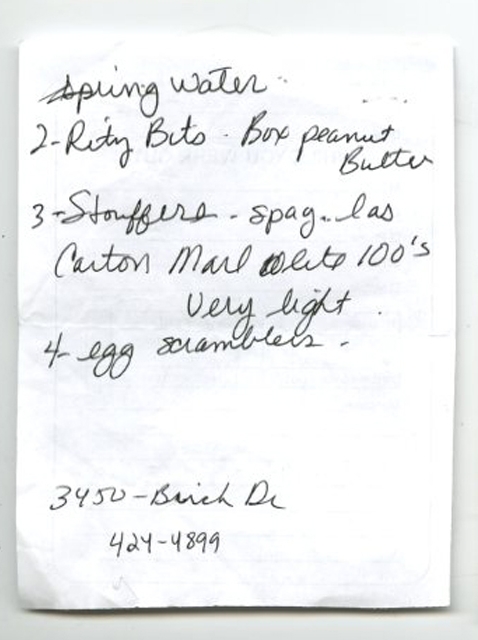 spring water
2-Ritz Bits - Box peanut
Butter
3-Stouffers - spag.. las
Carton Marl white 100's
Very light
4- egg scramblers -
3450-Birch Dr
424-4899